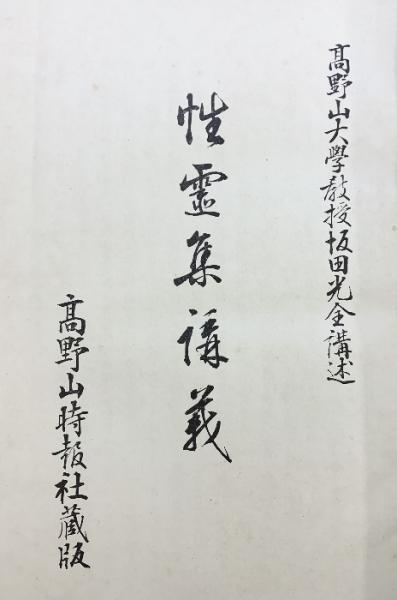 高野山大學教授坂田光全講述
性靈集講義
高野山時報社蔵版